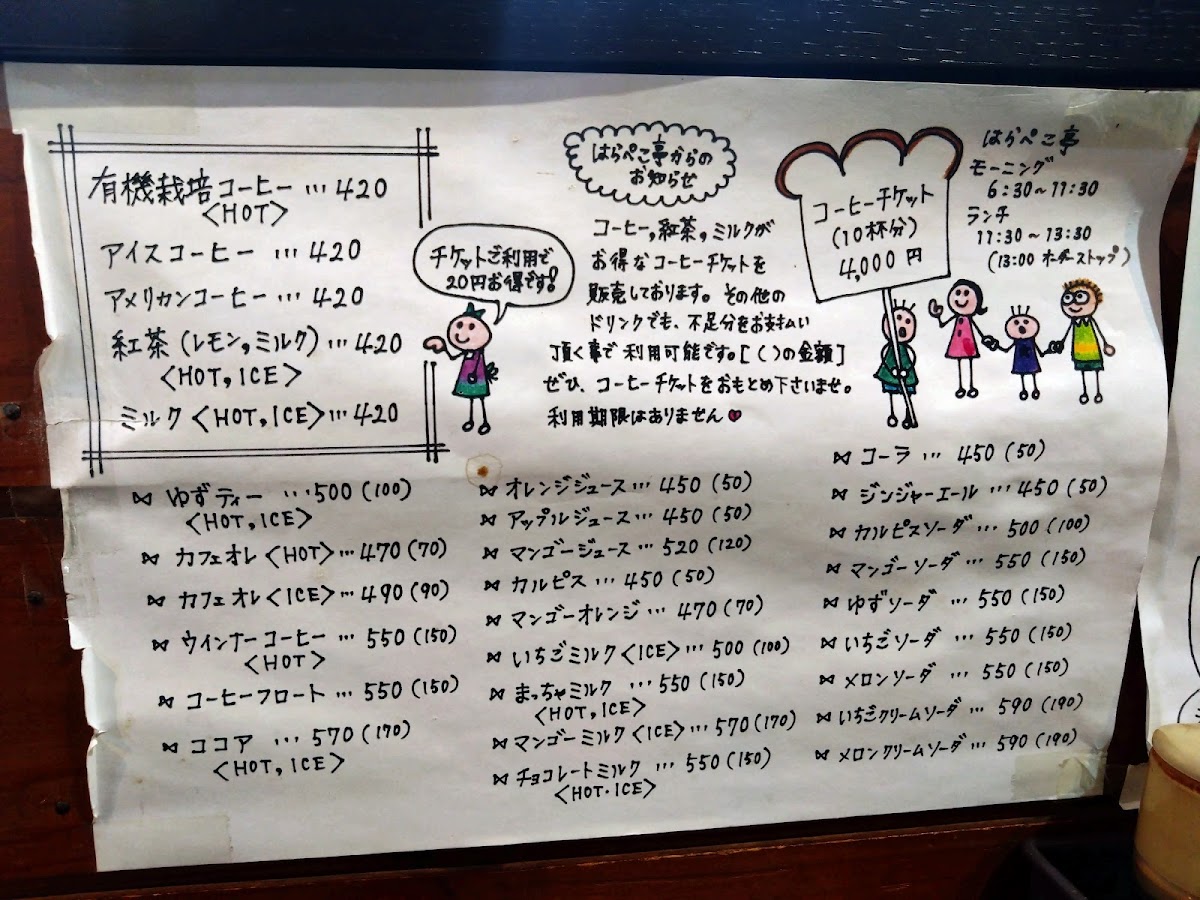 有機栽培コーヒー…420
<HOT>
アイスコーヒー…420
アメリカンコーヒー…420
紅茶(レモン,ミルク)…420
<HOT,ICE>
ミルク<HOT,ICE>…420
チケットご利用で
20円お得です!
はらぺこ亭からの
お知らせ
コーヒー,紅茶,ミルクが
お得なコーヒーチケットを
販売しております。その他の
ドリンクでも、不足分をお支払い
頂く事で利用可能です。[( )の金額]
ぜひ、コーヒーチケットをおもとめ下さいませ。
利用期限はありません♥
コーヒーチケット
(10杯分)
4,000円
はらぺこ亭
モーニング
6:30~11:30
ランチ
11:30~13:30
(13:00 オーダーストップ)
⋈ ゆずティー…500(100)
<HOT,ICE>
⋈ カフェオレ<HOT>…470(70)
⋈ カフェオレ<ICE>…490(90)
⋈ ウインナーコーヒー…550(150)
<HOT>
⋈ コーヒーフロート…550(150)
⋈ ココア…570(170)
<HOT,ICE>
⋈ オレンジジュース…450(50)
⋈ アップルジュース…450(50)
⋈ マンゴージュース…520(120)
⋈ カルピス…450(50)
⋈ マンゴーオレンジ…470(70)
⋈ いちごミルク<ICE>…500(100)
⋈ まっちゃミルク…550(150)
<HOT,ICE>
⋈ マンゴーミルク<ICE>…570(170)
⋈ チョコレートミルク…550(150)
<HOT・ICE>
⋈ コーラ…450(50)
⋈ ジンジャーエール…450(50)
⋈ カルピスソーダ…500(100)
⋈ マンゴーソーダ…550(150)
⋈ ゆずソーダ…550(150)
⋈ いちごソーダ…550(150)
⋈ メロンソーダ…550(150)
⋈ いちごクリームソーダ…590(190)
⋈ メロンクリームソーダ…590(190)